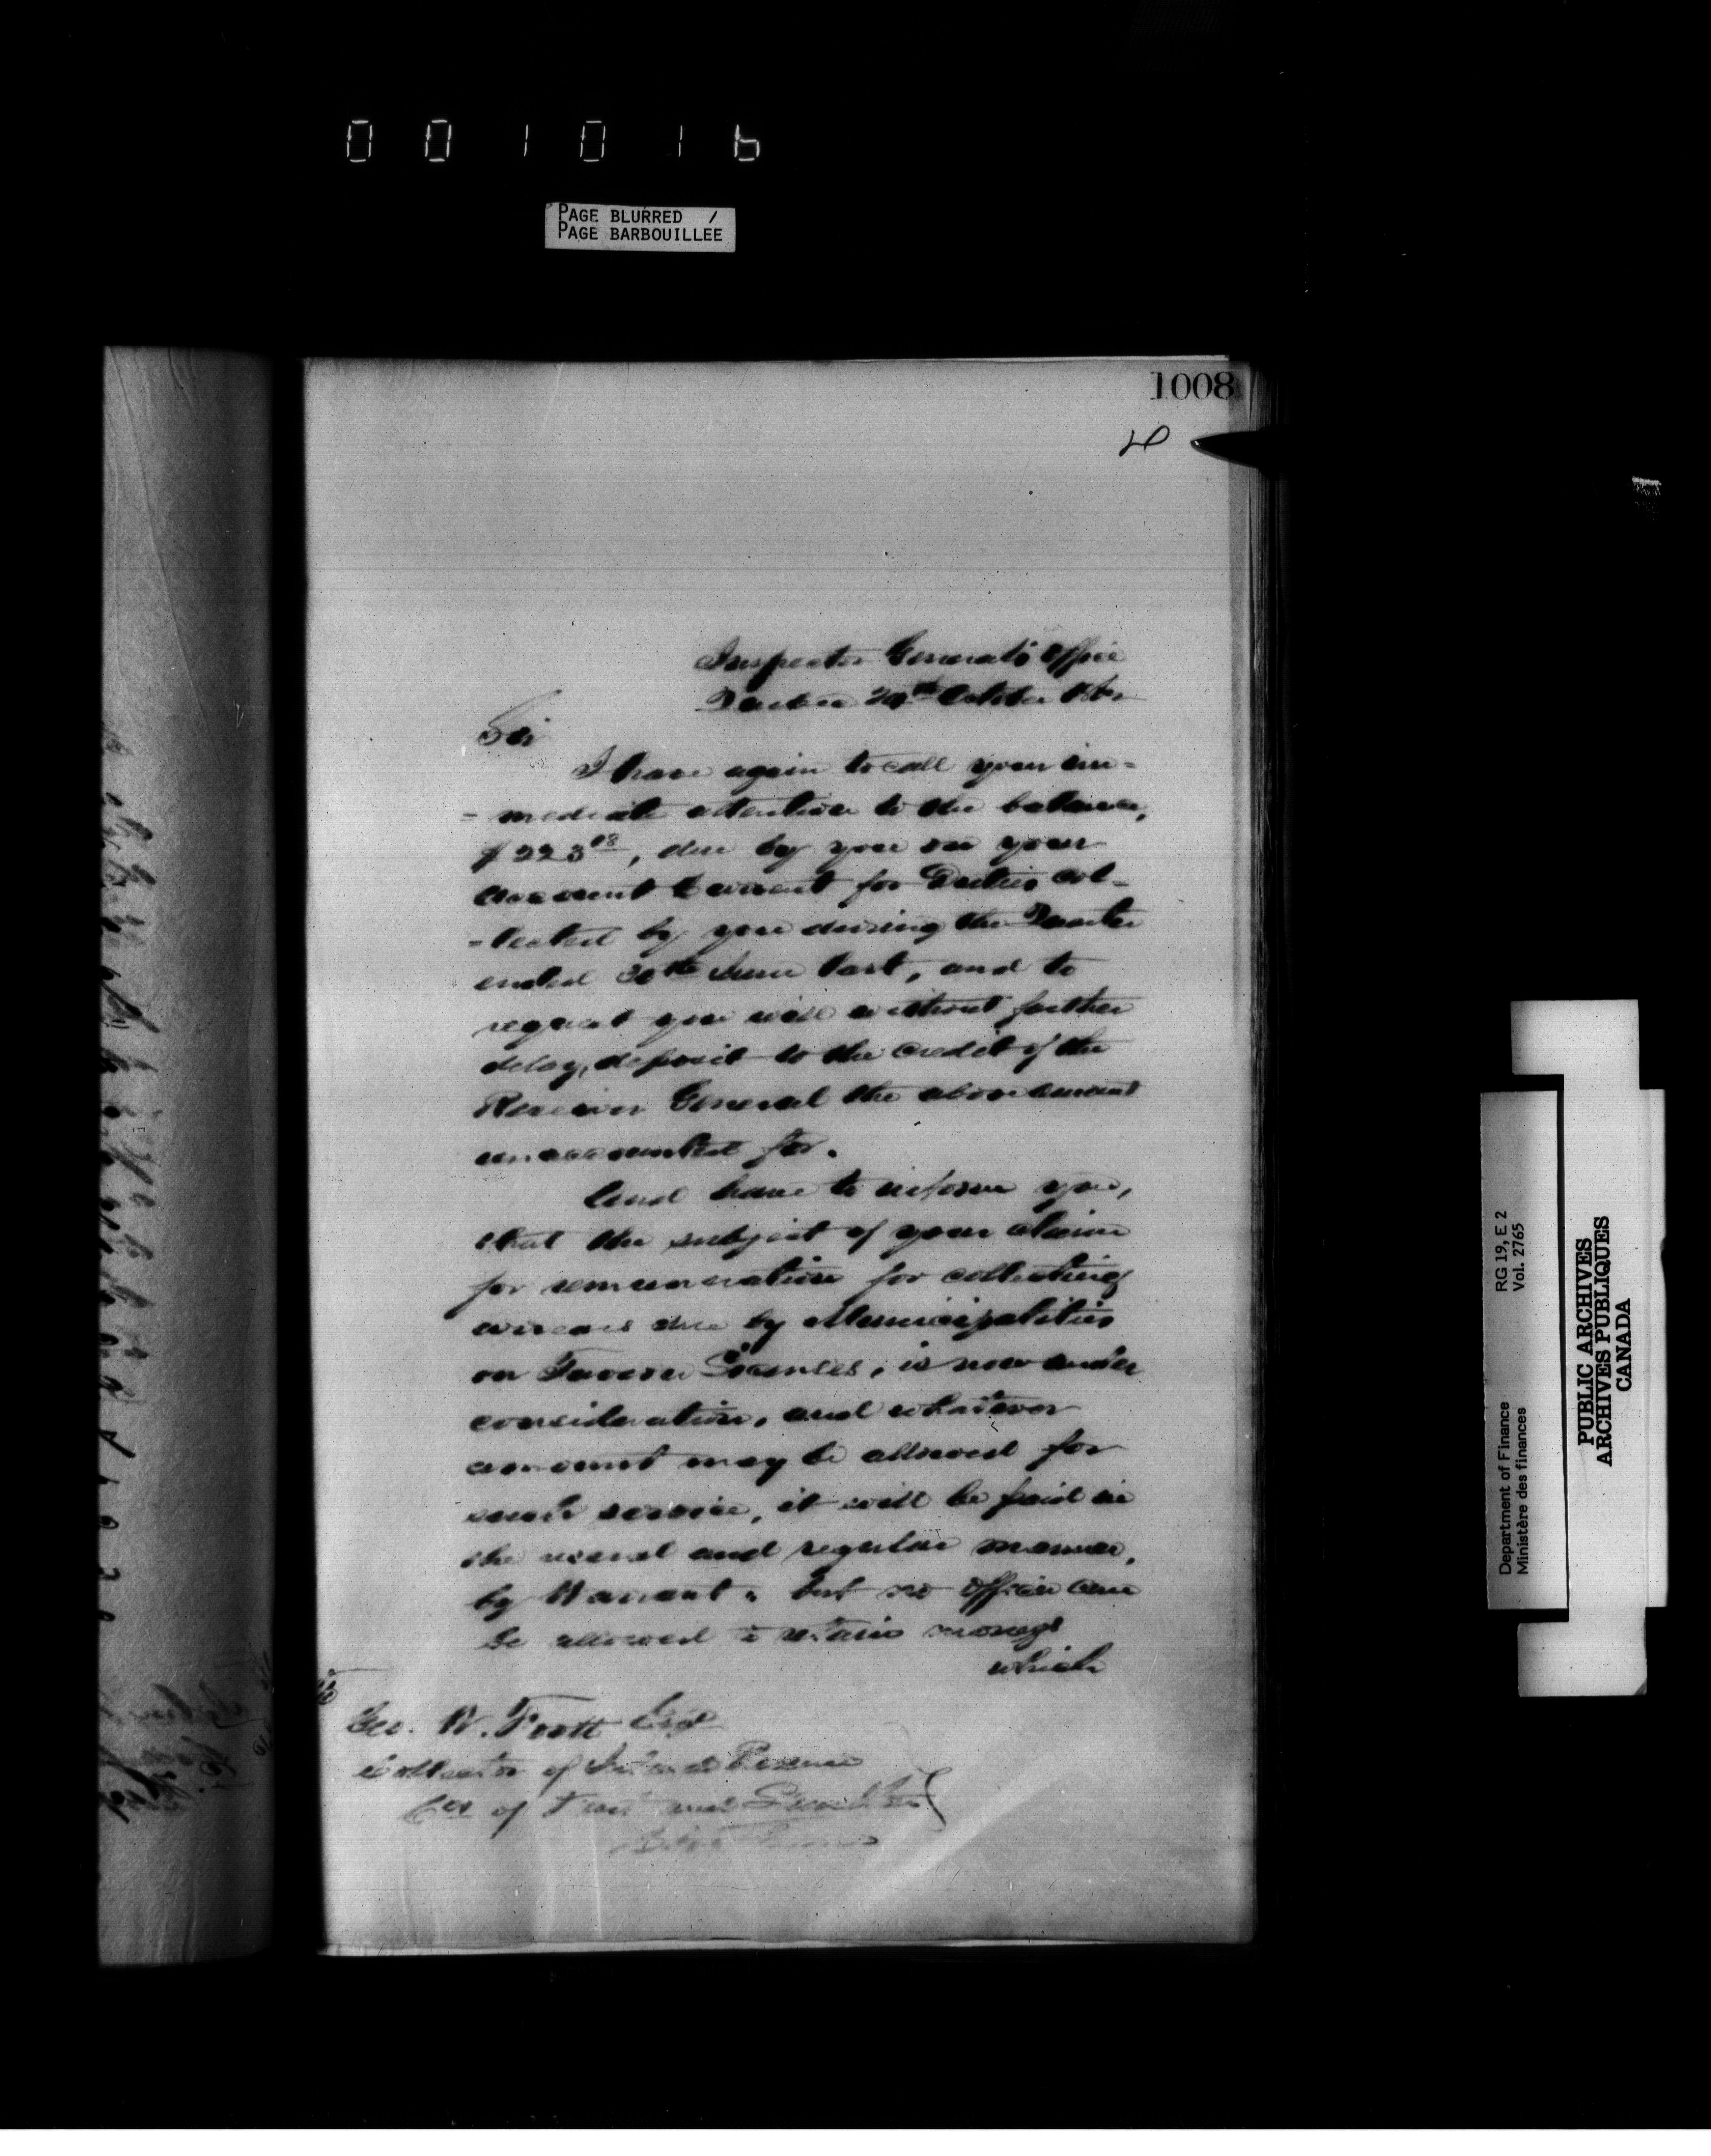 001016
PAGE BLURRED /
PAGE BARBOUILLEE
1008
Inspector General's Office
Quebec 24th October
Sir
I have again to call your im=
=mediate attention to the balance,
$223 08, due by you on your
account Current for Duties col=
=lected by you during the Quarter
ended 30th June last, and to
request you will without further
delay, deposit to the credit of the
Receiver General the above amount
unaccounted for.
And have to inform you,
that the subject of your claim
for remuneration for collecting
arrears due by Municipalities
on Tavern Licenses, is now under
consideration, and whatever
amount may be allowed for
such service, it will be paid in
the usual and regular manner,
by Warrant, but no officer can
be allowed to retain moneys
which
Geo. W. Foott Esqr
Collector of Inland Revenue
Cos of and
RG 19, E 2
Vol. 2765
Department of Finance
Ministère des finances
PUBLIC ARCHIVES
ARCHIVES PUBLIQUES
CANADA